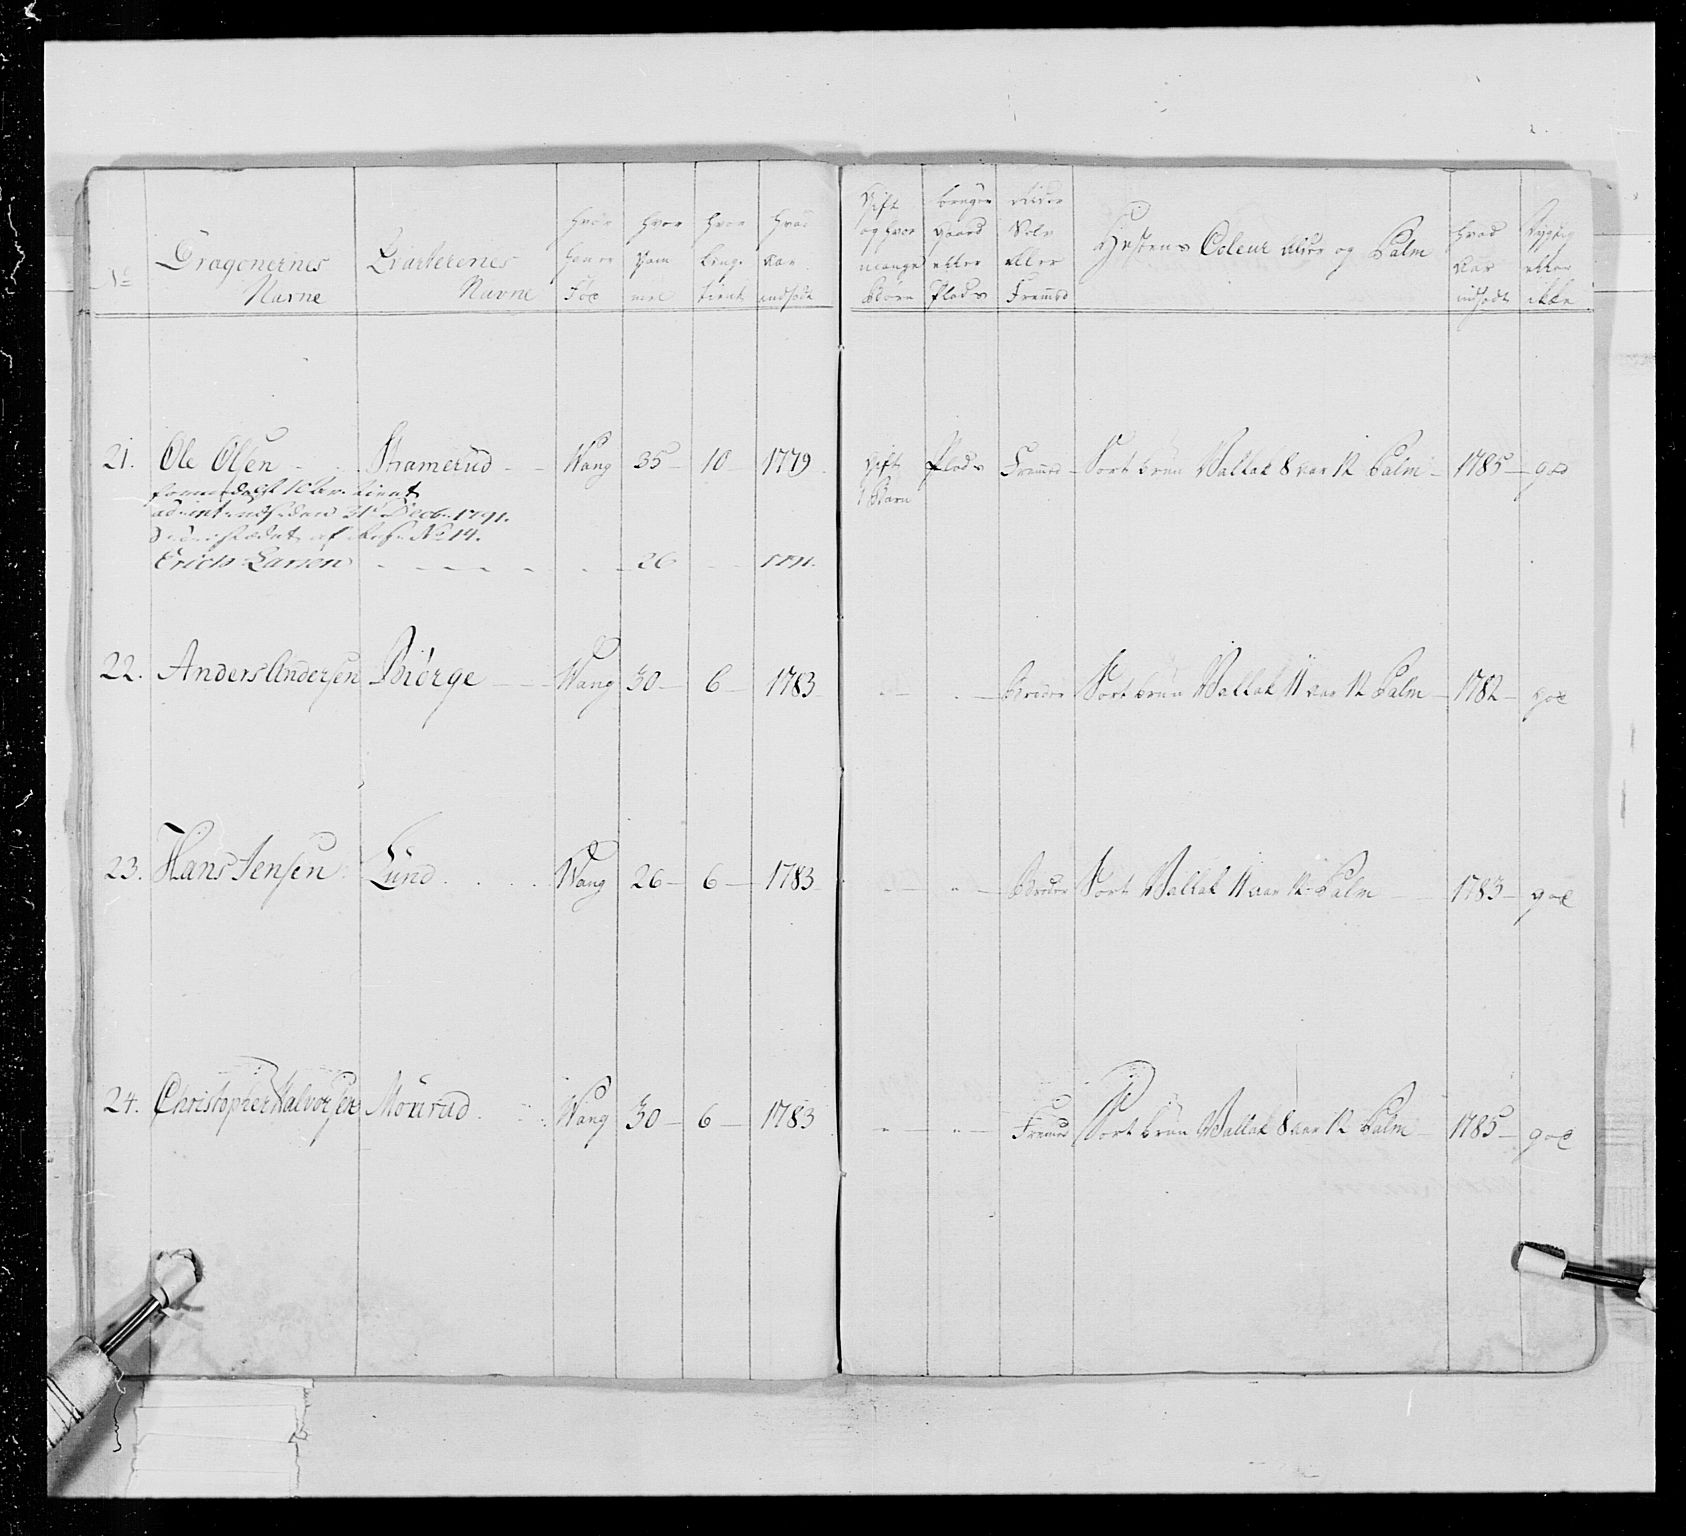 No Dragonernes Navne Qvarterenes Navne hvor han er Föd hvor gam mel hvor længe tient hvad Aar indsadt Gift og hvor mange Börn bruger Gaard eller Plads Rider Selv eller Fremed Hestens Coleur Alder og Palm hvad Aar indsadt dygtig eller ikke
21. Ole Olsen Stramerud Wang 35 10 1779 Gift 1 Barn Plads Fremed Sort brun Vallak 8 aar 12 Palm 1785 god
tient
31te Decb. 1791.
af No 14.
Erich Larsen 26 1791.
22. Anders Andersen Biörge Wang 30 6 1783 Broder Sort brun Vallak 11 aar 12 Palm 1782 god
23. Hans Jensen Lund Wang 26 6 1783 Broder Sort Vallak 11 aar 12 Palm 1783 god
24. Christopher Halvorsen Mourud Wang 30 6 1783 Fremed Sort brun Vallak 8 aar 12 Palm 1785 god